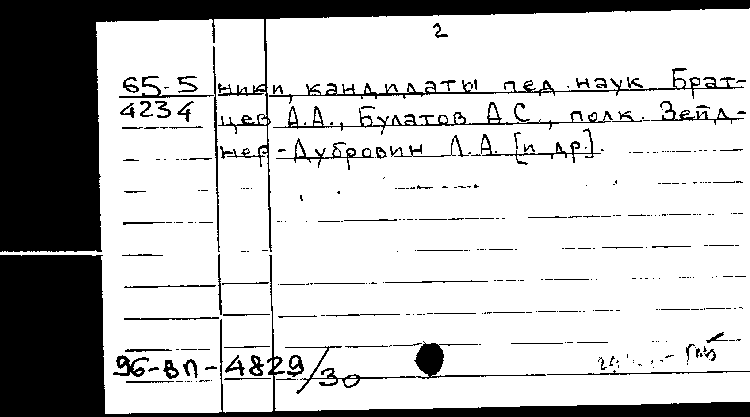 2
65-5 ники, кандидаты пед. наук Брат-
4234 цев А.А., Булатов А.С., полк. Зейд-
нер-Дубровин Л.А. [и др].
96-ВП-4829/30